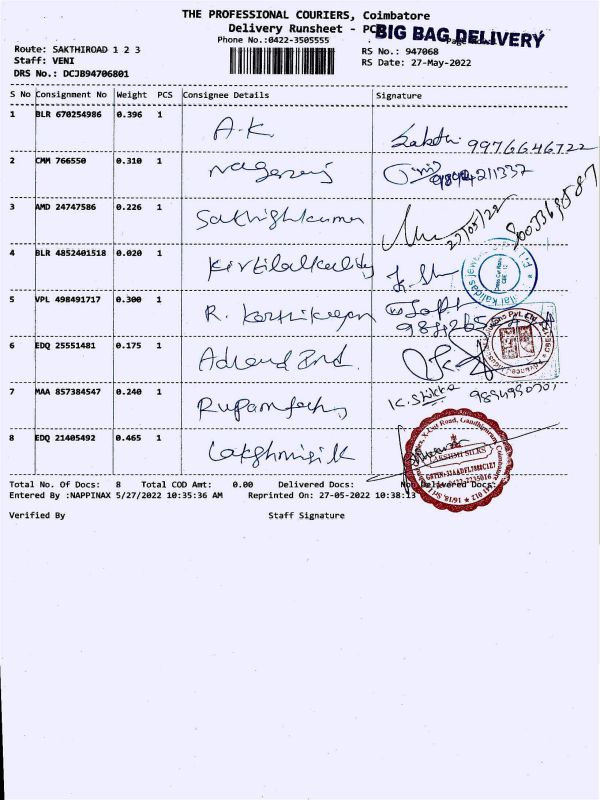 THE PROFESSIONAL COURIERS, Coimbatore
Delivery Runsheet - PC
BIG BAG DELIVERY
Phone No.:0422-3505555
Route: SAKTHIROAD 1 2 3
RS No.: 947068
Staff: VENI
RS Date: 27-May-2022
DRS No.: DCJB94706801
S No Consignment No Weight PCS Consignee Details Signature
1 BLR 670254986 0.396 1 A.K Sakthi 9976646722
2 CMM 766550 0.310 1 Nagaraj
3 AMD 24747586 0.226 1 Sathishkumar 27/05/22
4 BLR 4852401518 0.020 1 Kirtilalkalidas
5 VPL 498491717 0.300 1 R. Karthikeyan
6 EDQ 25551481 0.175 1
7 MAA 857384547 0.240 1 K. Shikha
8 EDQ 21405492 0.465 1 Lakshmi silk
LAKSHMI SILKS
Total No. Of Docs: 8 Total COD Amt: 0.00 Delivered Docs: Non Delivered Docs:
Entered By :NAPPINAX 5/27/2022 10:35:36 AM Reprinted On: 27-05-2022 10:38:13
Verified By Staff Signature